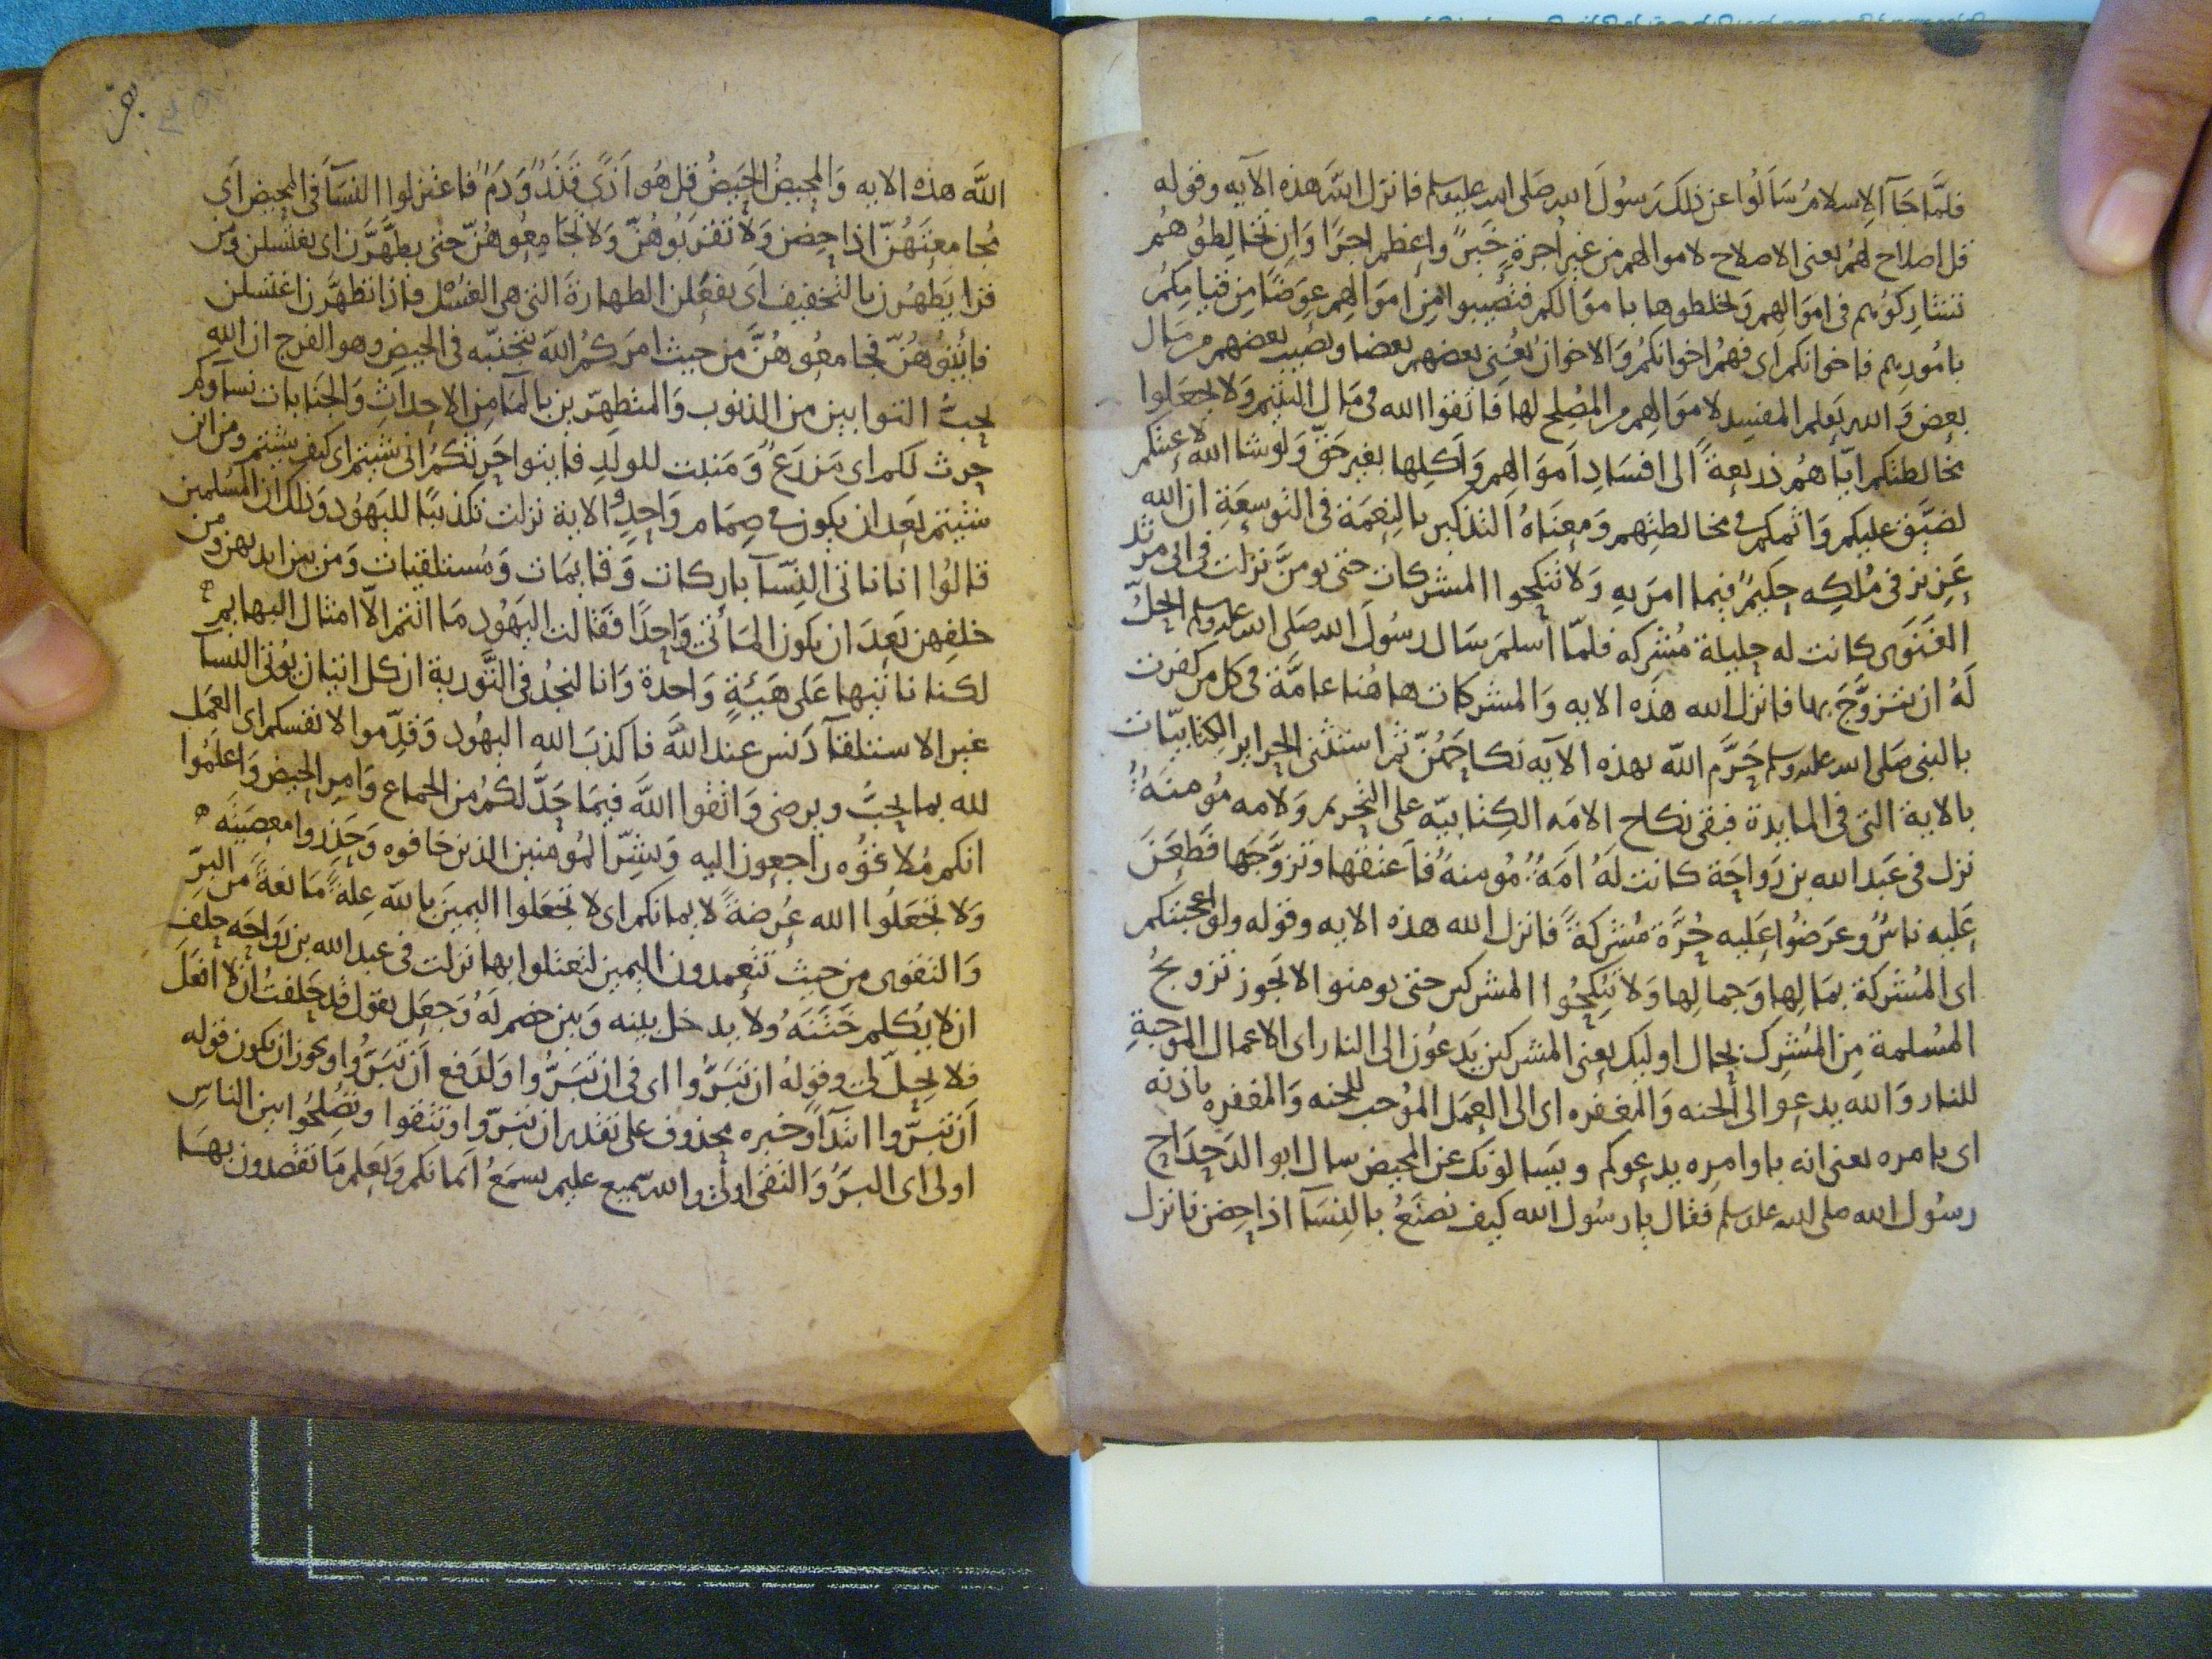 فلمَّا جَآ الاِسلامُ سَاَلُوا عن ذلكَ رَسُولَ الله صَلى الله عليه وسلم فانزَل اللهَ هذه الآيه وقوله
قل اصلاح لهُم يعنى الاصلاح لاموالهم من غير اجرة خَيرٌ واعظم اجرَا وَاِن تخالِطوُهُم
تشارِكوُهم فى اموَالهم وَتخلطوها باموَالكم فتُصيبوا مِن اموَالهِم عِوَضًا مِن قيامِكُم
بامُورهم فاخوانكم اى فهُم اخوانكُم وَالاخوانُ يُعِينُ بعضهم بعضا ويُصيب بعضهم من مَال
بعض وَالله يَعلم المفسِد لاموَالهِم من المصُلح لها فَاتقوا الله فى مَال اليتيم وَلا تجعَلوا
مخالطتكم ايّاهُم ذريعةً الى افسَادِ اَموَالهِم وَاكلِها بغير حَقٍّ وَلوشا الله لاعنتكم
لضيَّق عليكم وَاثمكم فى مخالطتِهم وَمعنَاهُ التذكير بالنِعمَة فى التوسِعَةِ ان الله
عَزيز فى مُلكِه حكيمٌ فيما امرَ بهِ وَلا تنكحوا المشركات حتى يومنَّ نزلت فى ابى مرثد
الغَنَوِى كانت له خليلة مُشركه فلمّا اسلمَ سَال رسُولَ الله صَلى الله عليه وسلم ايحلُّ
لَهُ ان يتزوَّجَ بها فانزل الله هذه الايه وَالمشركات هاهُنا عامَّة فى كل من كفرت
بالنبى صَلى الله عليه وسلم حَرَّم اللّه بهذه الآيه نكاحَهُنّ ثم استثنى الحراير الكتابيّات
بالاية التى فى المايدة فبقى نكاح الامَه الكِتابيّه على التحريم وَلامه مُومنهُ
نزل فى عَبد الله بن رَوَاحَة كانت لَهُ اَمَةٌ مُومنهُ فَاَعتقها وتزوَّجَها فطَعَنَ
عَليه ناسٌ وعرَضُوا عَليه حُرَّة مُشركةً فانزل الله هذه الايه وقوله ولواعجبتكم
اى المُشركة بمَالِها وَجمالِها وَلا تنكِحُوا المشركين حتى يومنوا الا تجوز تزويج
المسُلمة مِن المُشرِك بحال اوليك يعنى المشركين يَدعُون الى النار اى الاعمال الموجبةِ
للنار وَالله يدعوا الى الجنه وَالمغفره اى الى العمَل المُوجب للجنه وَالمغفره باذنه
اى بامره يعنى انه باوامِره يدعوكم ويَسَالونك عن المحيض سال ابو الدَحدَاح
رسُول الله صلى الله عليه وسلم فقال يا رسُول الله كيف نصنَعُ بالنِسَآ اذا حِضن فانزل
اللَّه هذه الايه وَالمحيضُ الحيَضُ قل هُو اَذىً قَذَرٌ وَدَمٌ فاعتزلوا النسَآ فى المحيض اَى
مُجامعتَهُنّ اذا حِضن وَلا تقرَبُوهُنّ وَلا تجَامِعُوهُنّ حتى يطهَّرَن اى يغتسلن ومن
قرا يَطهُرن بالتخفيف اَى يَفعَلن الطهارةَ التى هى الغسُل فاذا تطهَّرن اغتسلن
فَاتُوهُنّ فجامعُوهُنَّ من حيث امرَكُم اللّه بتجنبّه فى الحيض وهو الفرج ان الله
يحبُّ التوابين من الذنوب وَالمتطهّرين بالمآ مِن الاحداث وَالجنَابات نسَآوكم
حرث لكم اى مَزرَعٌ وَمَنبت للولَدِ فاتوا حَرثكُم انى شئتم اى كيف شئتم ومن اين
شئيتم بَعد ان يكون فى صِمَام وَاحِدٍ والاية نزلت تكذيبًا لليَهُود وَذلك ان المسُلمين
قالوُا انا ناتى النسِّآ باركات وَقايمَات وَمُستلقيات وَمن بين ايديهن ومن
خلفِهن بَعدَ ان يكون المَأتى وَاحِدًا فقالت اليَهُود مَا انتم الّا امثال البهايم
لكنا ناتيها عَلى هَيئةٍ وَاحدة وَانا لنجدُ فى التَّورية ان كل اتيان يُوتى النسآ
غير الاستلقآ دَنس عند اللَّه فاكذبَ الله اليهُود وَقدِّموا لانفسكم اى العَمل
لله بما يحبُّ ويرضى وَاتقوا اللَّه فيمَا حَدَّ لكُم من الجماع وَامرِ الحيض وَاعلمُوا
انكم مُلاقُوه راجعون اليه وَبشّر المُومنين الذين خافوه وَحَذِروا معصيَتَه
وَلا تجعَلُوا الله عُرضةً لايمانكم اى لا تجعَلوا اليمينَ باللّه عِلةً مَانعةً من البرِّ
وَالتقوى من حيث تتعمدون اليمين لتعتلوا بها نزلت فى عبد الله بن رَوَاحَه حلَف
ان لا يُكلم خَتَنَهُ وَلا يدخل بينه وَبين خصم لَهُ وَجعَل يقول قد حَلفتُ ان لا افعَل
فلا يحِلّ لى وقولهُ ان تبَرُّوا اى فى ان تبَرُّوا ولَدَفع اَن تَبَرُّوا ويجوز ان يكون قوله
اَن تبرُّوا ابتدَآً وخبره محذوف على تقدير ان تبرّوا وتتقوا وتصُلِحُوا بين الناسِ
اولى اى البرُّ وَالتقى اولى والله سميع عليم يسمَعُ اَيمانكم وَيَعلم مَا تقصدون بهَا